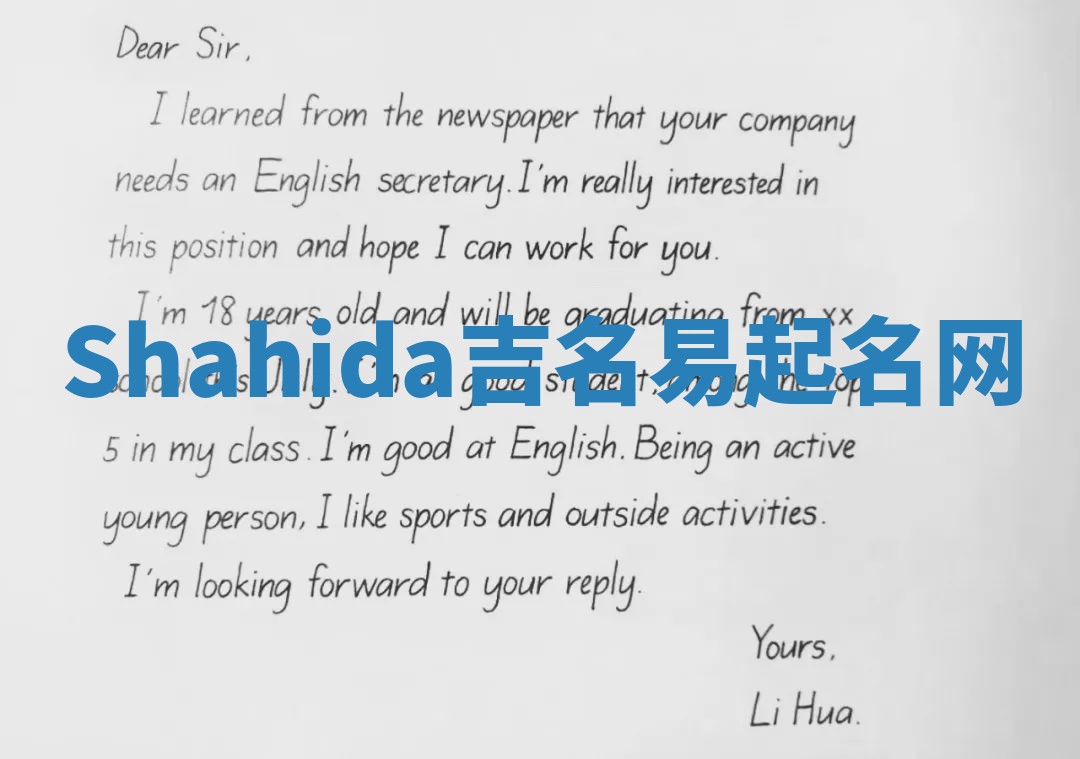 Dear Sir,
I learned from the newspaper that your company
needs an English secretary. I'm really interested in
this position and hope I can work for you.
I'm 18 years old and will be graduating from xx
Shahida吉名易起名网
school this July. I'm a good student, among the top
5 in my class. I'm good at English. Being an active
young person, I like sports and outside activities.
I'm looking forward to your reply.
Yours,
Li Hua.